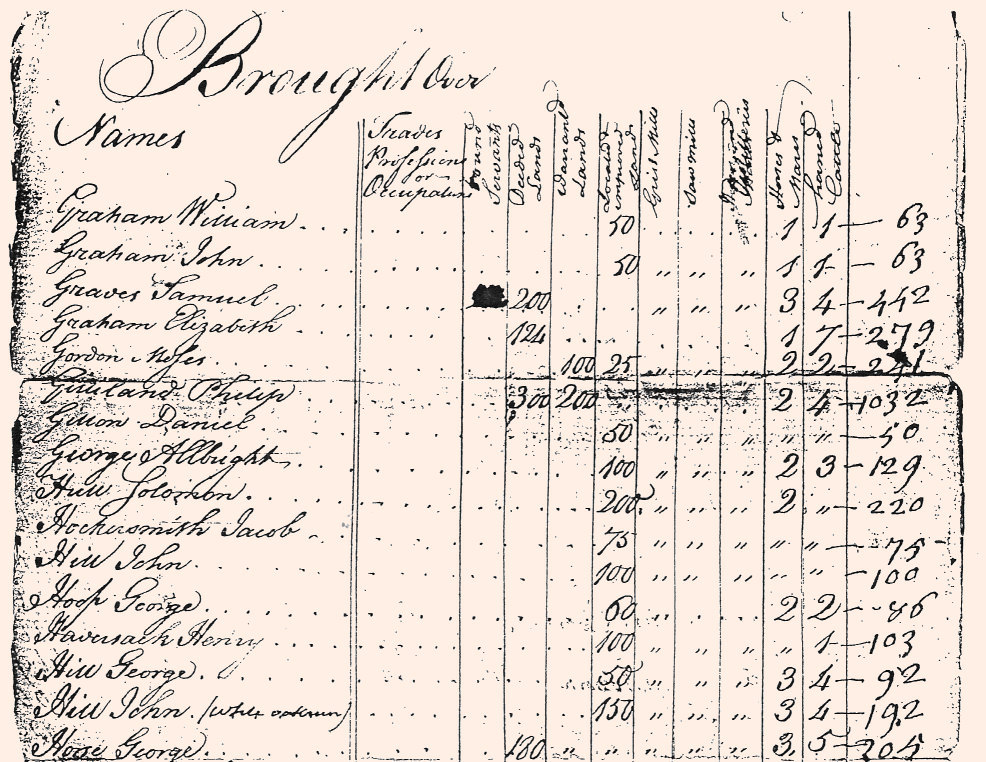 Brought Over
Names Trades Professions or Occupations Bound Servants Deeded Lands Warrand Lands Located unproved Land Grist Mills Saw mills Horses & Mares Horned Cattle
Graham William 50 1 1 — 63
Graham John 50 " " " 1 1 — 63
Graves Samuel 200 " " " 3 4 — 442
Graham Elizabeth 124 1 7 — 279
Gordon Moses 100 25 " " " 2 2 — 241
Philip 300 200 2 4 — 1032
Daniel 50 " " " " " — 50
George Allbright 100 " " " 2 3 — 129
Hull Solomon 200 " " " 2 " — 220
Hockersmith Jacob 75 " " " " " — 75
Hill John 100 " " " " " — 100
Hoop George 60 " " " 2 2 — 86
Haversach Henry 100 " " " " 1 — 103
Hill George 50 " " " 3 4 — 92
Hill John 150 " " " 3 4 — 192
George 180 " " " " " 3 5 — 205